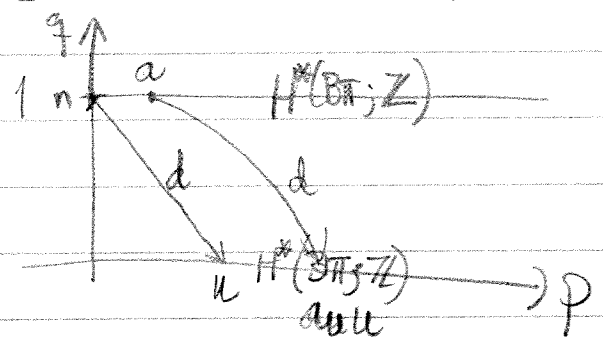 q
a
1 n H*(Bπ; ℤ)
d d
u H*(Bπ; ℤ) p
a∪u